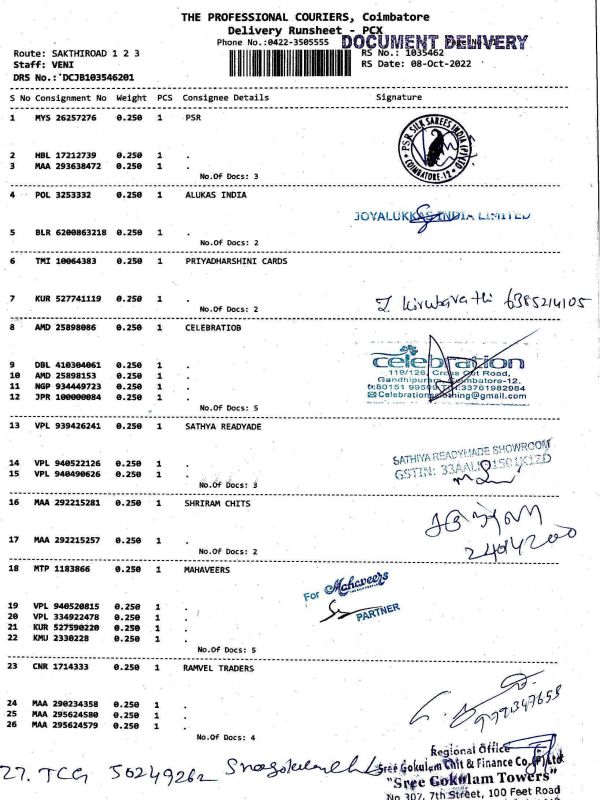 THE PROFESSIONAL COURIERS, Coimbatore
Delivery Runsheet - PCX
Phone No.:0422-3505555 DOCUMENT DELIVERY
Route: SAKTHIROAD 1 2 3 RS No.: 1035462
Staff: VENI RS Date: 08-Oct-2022
DRS No.: DCJB103546201
S No Consignment No Weight PCS Consignee Details Signature
1 MYS 26257276 0.250 1 PSR
PSR SILK SAREES INDIA (P) LTD
COIMBATORE-12
2 HBL 17212739 0.250 1 .
3 MAA 293638472 0.250 1 .
No.Of Docs: 3
4 POL 3253332 0.250 1 ALUKAS INDIA
JOYALUKKAS INDIA LIMITED
5 BLR 6200863218 0.250 1 .
No.Of Docs: 2
6 TMI 10064383 0.250 1 PRIYADHARSHINI CARDS
7 KUR 527741119 0.250 1 .
6385214105
No.Of Docs: 2
8 AMD 25898086 0.250 1 CELEBRATIOB
celebration
9 DBL 410304061 0.250 1 .
119/126, Cross Cut Road,
10 AMD 25898153 0.250 1 .
Gandhipuram, Coimbatore-12.
11 NGP 934449723 0.250 1 .
12 JPR 100000084 0.250 1 .
No.Of Docs: 5
13 VPL 939426241 0.250 1 SATHYA READYADE
SATHIYA READYMADE SHOWROOM
14 VPL 940522126 0.250 1 .
GSTIN:
15 VPL 940490626 0.250 1 .
No.Of Docs: 3
16 MAA 292215281 0.250 1 SHRIRAM CHITS
17 MAA 292215257 0.250 1 .
No.Of Docs: 2
18 MTP 1183866 0.250 1 MAHAVEERS
For Mahaveers
19 VPL 940520815 0.250 1 .
PARTNER
20 VPL 334922478 0.250 1 .
21 KUR 527590220 0.250 1 .
22 KMU 2330228 0.250 1 .
No.Of Docs: 5
23 CNR 1714333 0.250 1 RAMVEL TRADERS
24 MAA 290234358 0.250 1 .
25 MAA 295624580 0.250 1 .
26 MAA 295624579 0.250 1 .
No.Of Docs: 4
Regional Office
27. TCG 50249262
Sree Gokulam Chit & Finance Co.(P)Ltd
"Sree Gokulam Towers"
No 307, 7th Street, 100 Feet Road